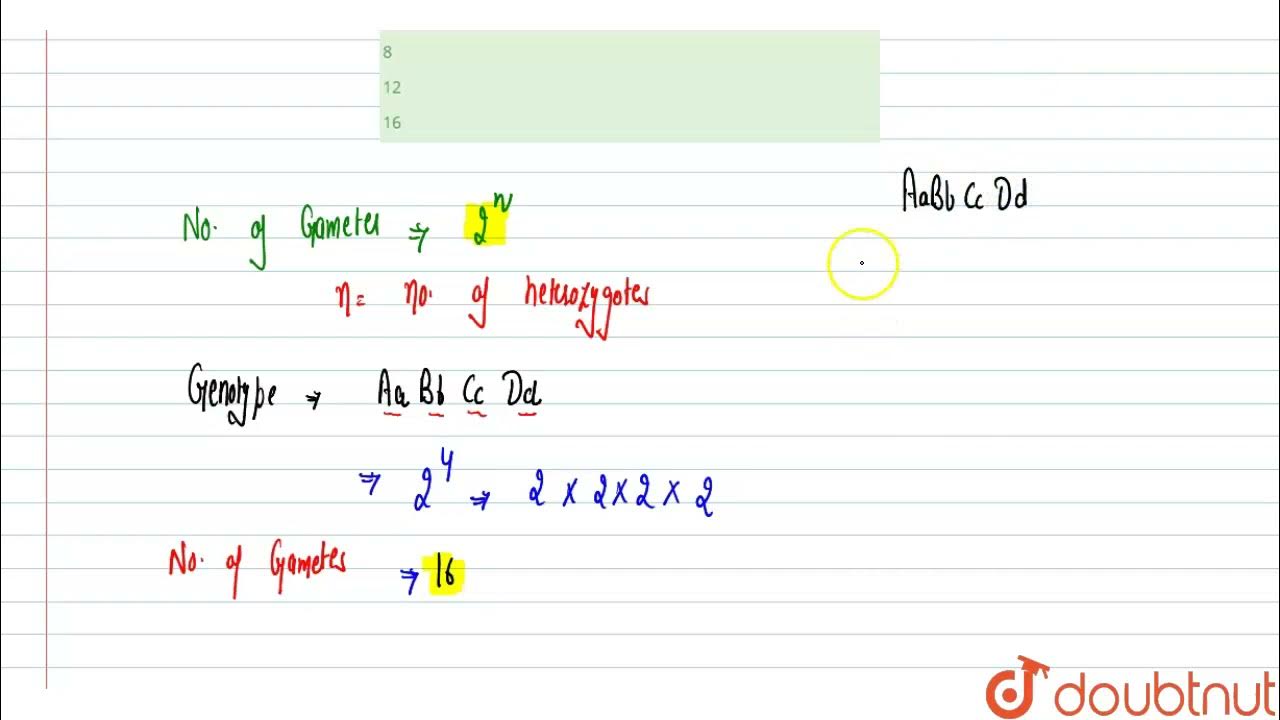 8
12
16
AaBb Cc Dd
No. of Gametes ⇒ 2^n
n = no. of heterozygotes
Genotype ⇒ Aa Bb Cc Dd
⇒ 2^4 ⇒ 2 x 2 x 2 x 2
No. of Gametes ⇒ 16
doubtnut